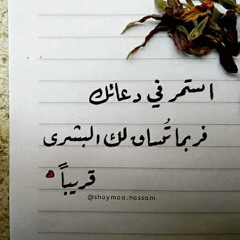 استمر في دعائك
فربما تُساق لك البشرى
قريباً
@shaymaa.nassam